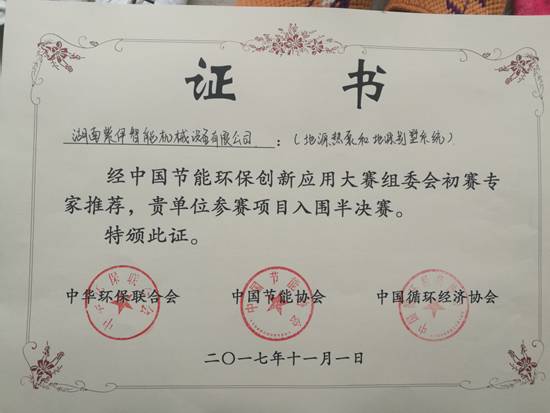 证 书
湖南紫伊智能机械设备有限公司：（地源热泵和地源别墅系统）
经中国节能环保创新应用大赛组委会初赛专
家推荐，贵单位参赛项目入围半决赛。
特颁此证。
中华环保联合会 中国节能协会 中国循环经济协会
二〇一七年十一月一日